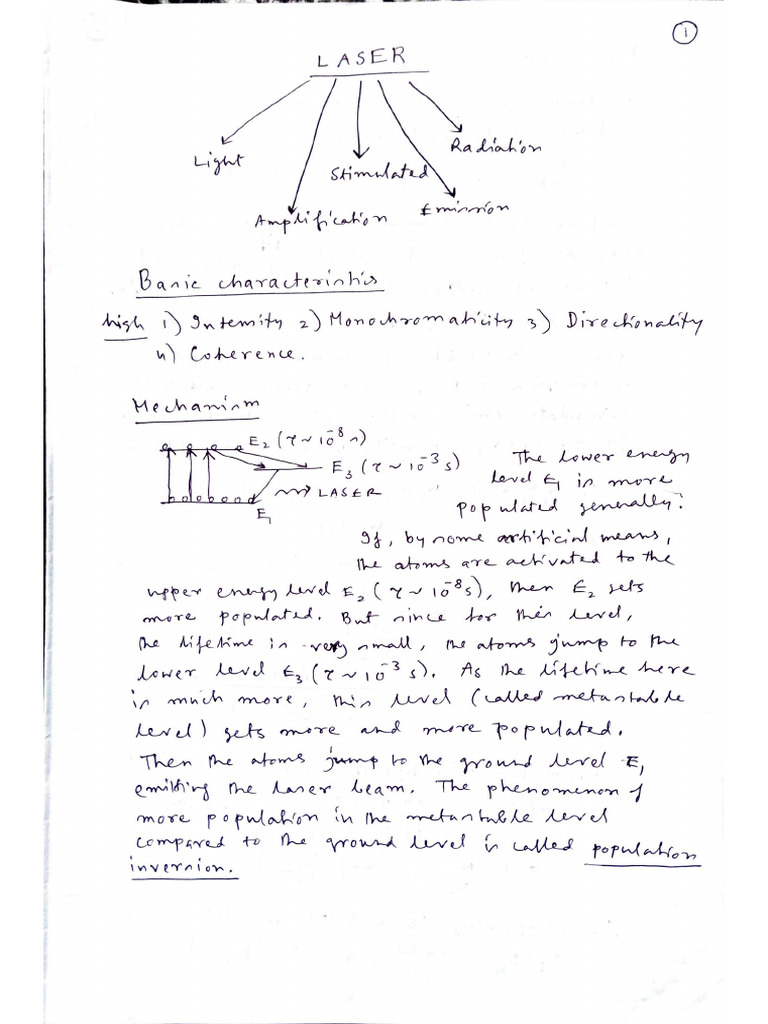 1
LASER
Light
Amplification
Stimulated
Emission
Radiation
Basic characteristics
high 1) Intensity 2) Monochromaticity 3) Directionality
4) Coherence.
Mechanism
E₂ (τ ~ 10⁻⁸ s)
E₃ (τ ~ 10⁻³ s)
LASER
E₁
The lower energy
level E₁ is more
populated generally.
If, by some artificial means,
the atoms are activated to the
upper energy level E₂ (τ ~ 10⁻⁸ s), then E₂ gets
more populated. But since for this level,
the lifetime is very small, the atoms jump to the
lower level E₃ (τ ~ 10⁻³ s). As the lifetime here
is much more, this level (called metastable
level) gets more and more populated.
Then the atoms jump to the ground level E₁
emitting the laser beam. The phenomenon of
more population in the metastable level
compared to the ground level is called population
inversion.